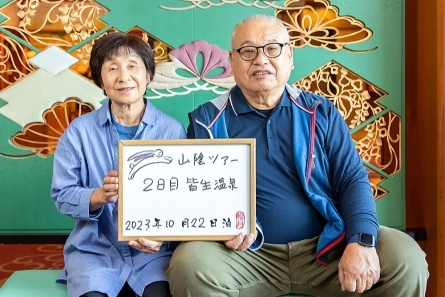 山陰ツアー
2日目 皆生温泉
2023年10月22日泊